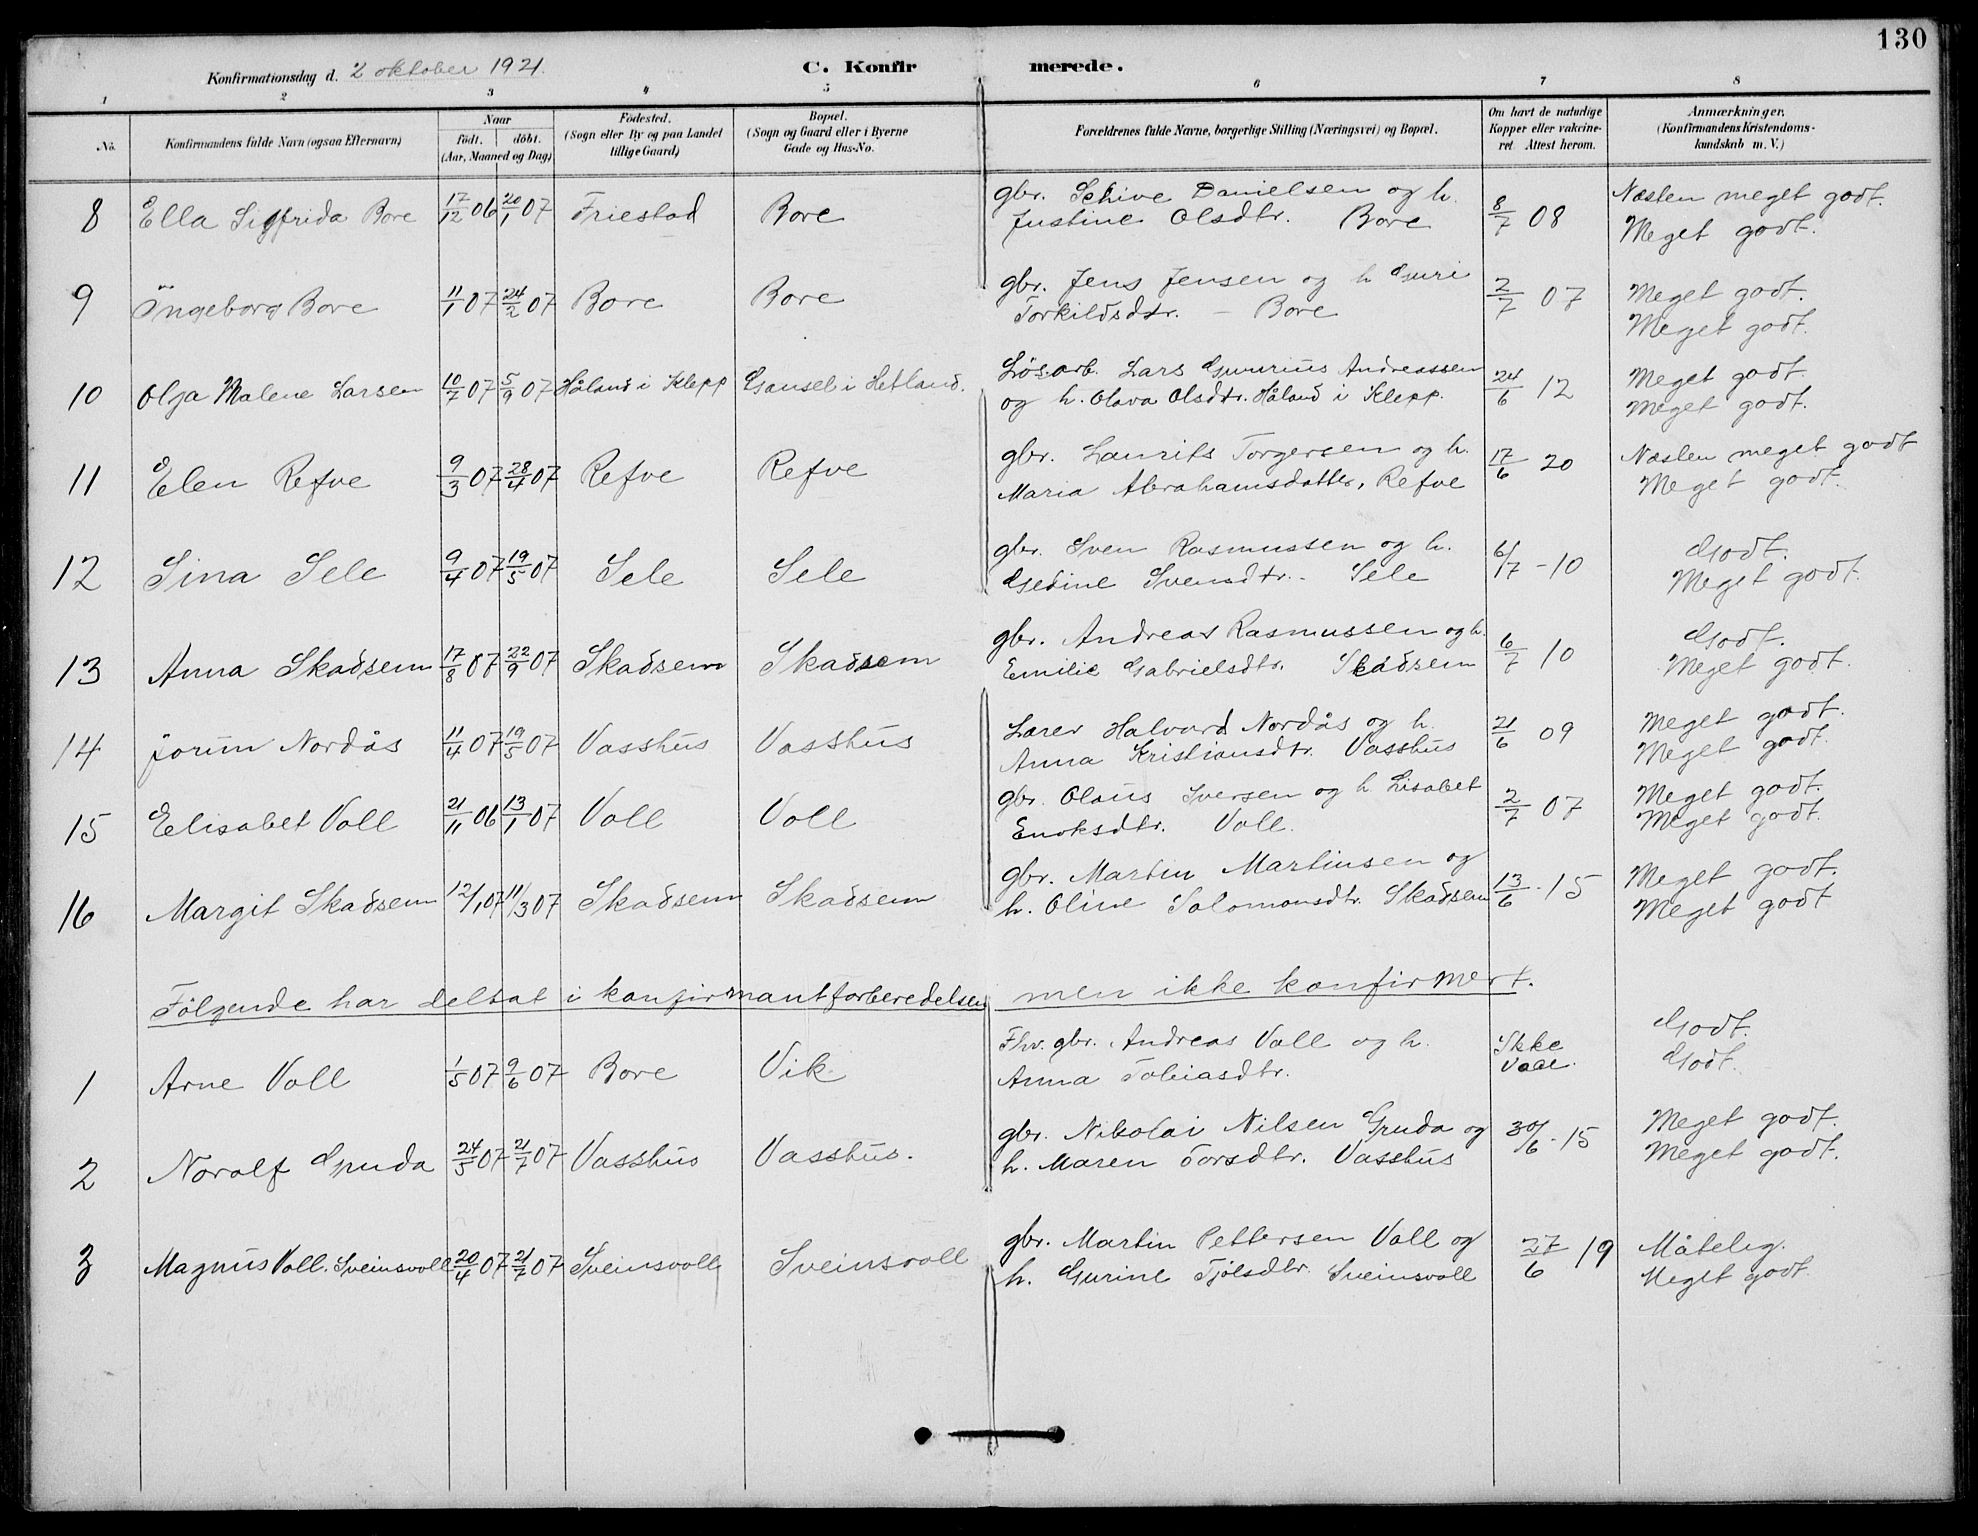 130
Konfirmationsdag d. 2 oktober 1921.
C. Konfirmerede.
1 2 3 4 5 6 7 8
No.
Konfirmandens fulde Navn (ogsaa Efternavn)
Naar
født. døbt.
(Aar, Maaned og Dag)
Fødested.
(Sogn eller By og paa Landet
tillige Gaard)
Bopæl.
(Sogn og Gaard eller i Byerne
Gade og Hus-No.
Forældrenes fulde Navne, borgerlige Stilling (Næringsvei) og Bopæl.
Om havt de naturlige
Kopper eller vakcine-
ret Attest herom.
Anmærkninger.
(Konfirmandens Kristendoms-
kundskab m. V.)
8 Ella Sigfrida Bore 17/12 06 20/1 07 Friestad Bore gbr. Schive Danielsen og h. 8/7 08 Næsten meget godt.
Justine Olsdtr. Bore Meget godt.
9 Ingeborg Bore 11/1 07 24/2 07 Bore Bore gbr. Jens Jensen og h Guri 2/7 07 Meget godt.
Torkildsdtr. - Bore Meget godt.
10 Olga Malene Larsen 10/7 07 5/9 07 Håland i Klepp Gausel i Hetland. Løsarb. Lars Gunnrius Andreassen 24/6 12 Meget godt.
og h. Olava Olsdtr. Håland i Klepp. Meget godt.
11 Elen Refve 9/3 07 28/4 07 Refve Refve gbr. Laurits Torgersen og h. 17/6 20 Næsten meget godt
Maria Abrahamsdatter, Refve Meget godt.
12 Sina Sele 9/4 07 19/5 07 Sele Sele gbr. Sven Rasmussen og h. 6/7 - 10 Godt.
Gjedine Svensdtr. - Sele Meget godt.
13 Anna Skadsem 17/8 07 22/9 07 Skadsem Skadsem gbr. Andreas Rasmussen og h. 6/7 10 Godt.
Emilie Gabrielsdtr. Skadsem Meget godt.
14 Jorun Nordås 11/4 07 19/5 07 Vasshus Vasshus Lærer Halvard Nordås og h. 21/6 09 Meget godt.
Anna Kristiansdtr. Vasshus Meget godt.
15 Elisabet Voll 21/11 06 13/1 07 Voll Voll gbr. Olaus Iversen og h. Lisabet 2/7 07 Meget godt.
Enoksdtr. Voll. Meget godt.
16 Margit Skadsem 12/1 07 11/3 07 Skadsem Skadsem gbr. Martin Martinsen og 13/6 - 15 Meget godt.
h. Oline Salomonsdtr. Skadsem Meget godt
Følgende har deltat i konfirmantforberedelsen men ikke konfirmert.
1 Arne Voll 1/5 07 9/6 07 Bore Vik Fhv. gbr. Andreas Voll og h. Ikke Godt.
Anna Tobiasdtr. Vacc. Godt.
2 Noralf Gruda 24/5 07 21/7 07 Vasshus Vasshus. gbr. Nikolai Nilsen Gruda og 30/6 - 15 Meget godt.
h. Maren Torsdtr. Vasshus Meget godt.
3 Magnus Voll. Sveinsvoll 20/4 07 21/7 07 Sveinsvoll Sveinsvoll gbr. Martin Pettersen Voll og 27/6 19 Måtelig.
h. Gurine Tjølsdtr. Sveinsvoll Meget godt